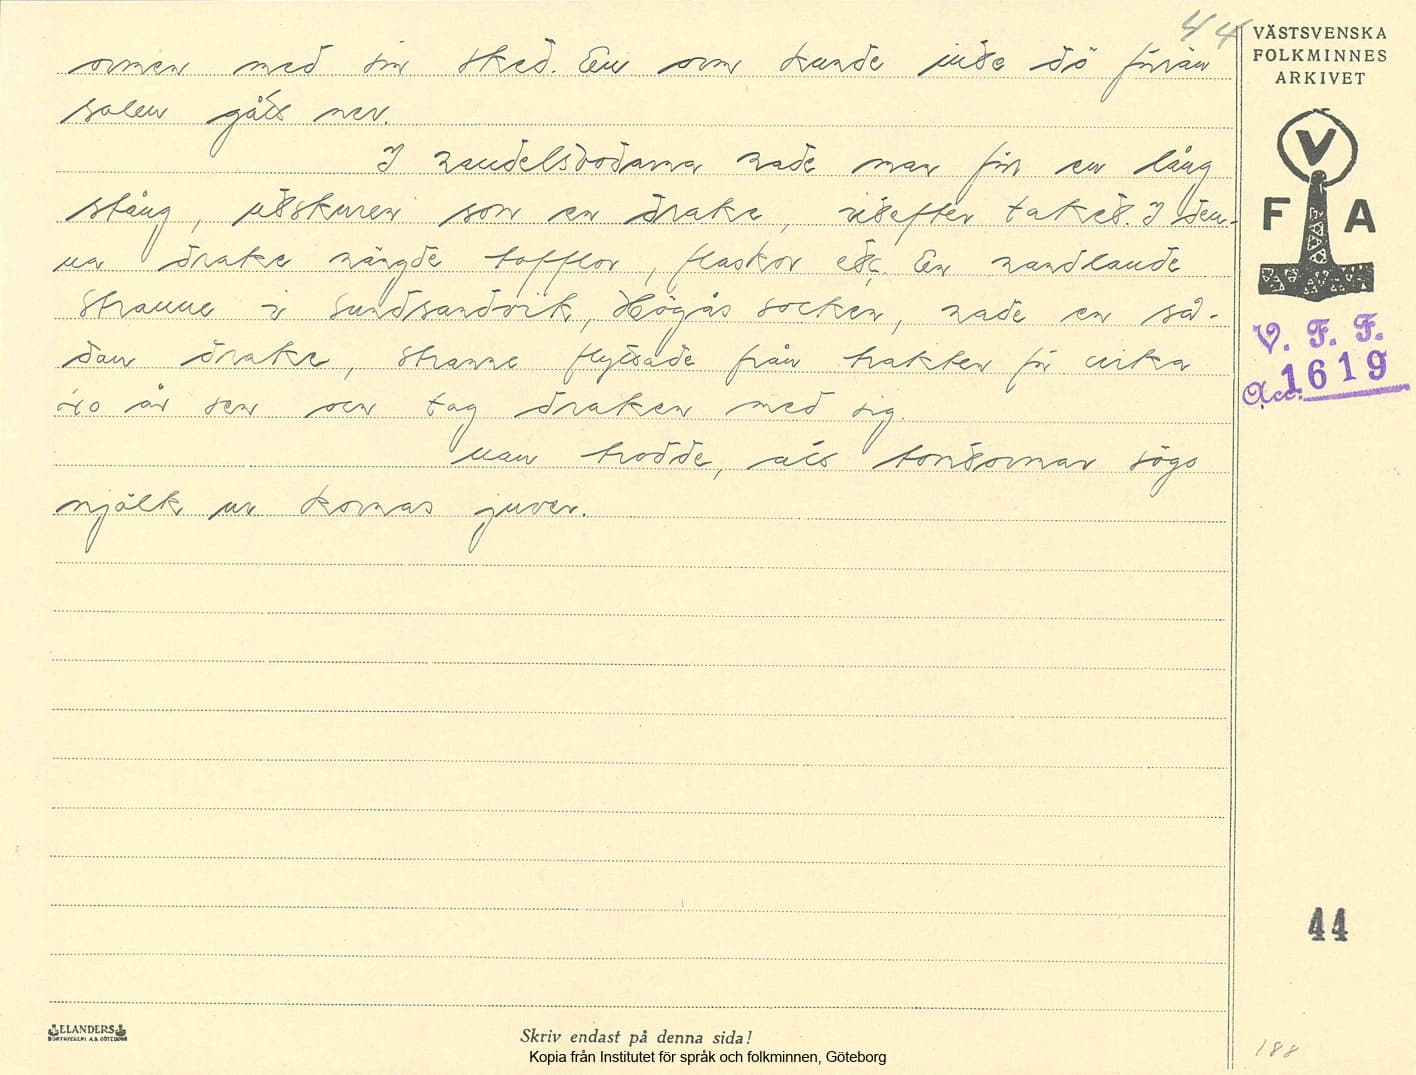 44
ormen med sin sked. En orm kunde inte dö förrän
solen gått ner.
I handelsbodarna hade man för en lång
stång, utskuren som en drake, utefter taket. I den-
na drake hängde tofflor, flaskor etc. En handlande
Stranne i Sundsandvik, Högås socken, hade en så-
dan drake, Stranne flyttade från trakten för cirka
år sen och tog draken med sig.
Man trodde, att tomtormar sögo
mjölk ur kornas juver.
VÄSTSVENSKA
FOLKMINNES
ARKIVET
V
F A
V. F. F.
Acc. 1619
44
188
ELANDERS
BOKTRYCKERI A.B. GÖTEBORG
Skriv endast på denna sida!
Kopia från Institutet för språk och folkminnen, Göteborg